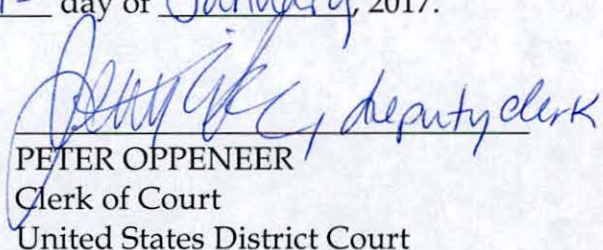 day of January, 2017.
deputy clerk
PETER OPPENEER
Clerk of Court
United States District Court